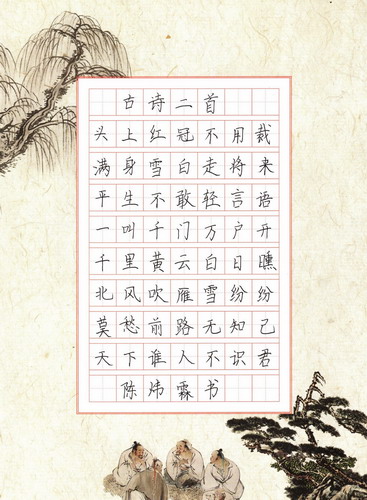 古诗二首
头上红冠不用裁
满身雪白走将来
平生不敢轻言语
一叫千门万户开
千里黄云白日曛
北风吹雁雪纷纷
莫愁前路无知己
天下谁人不识君
陈炜霖书